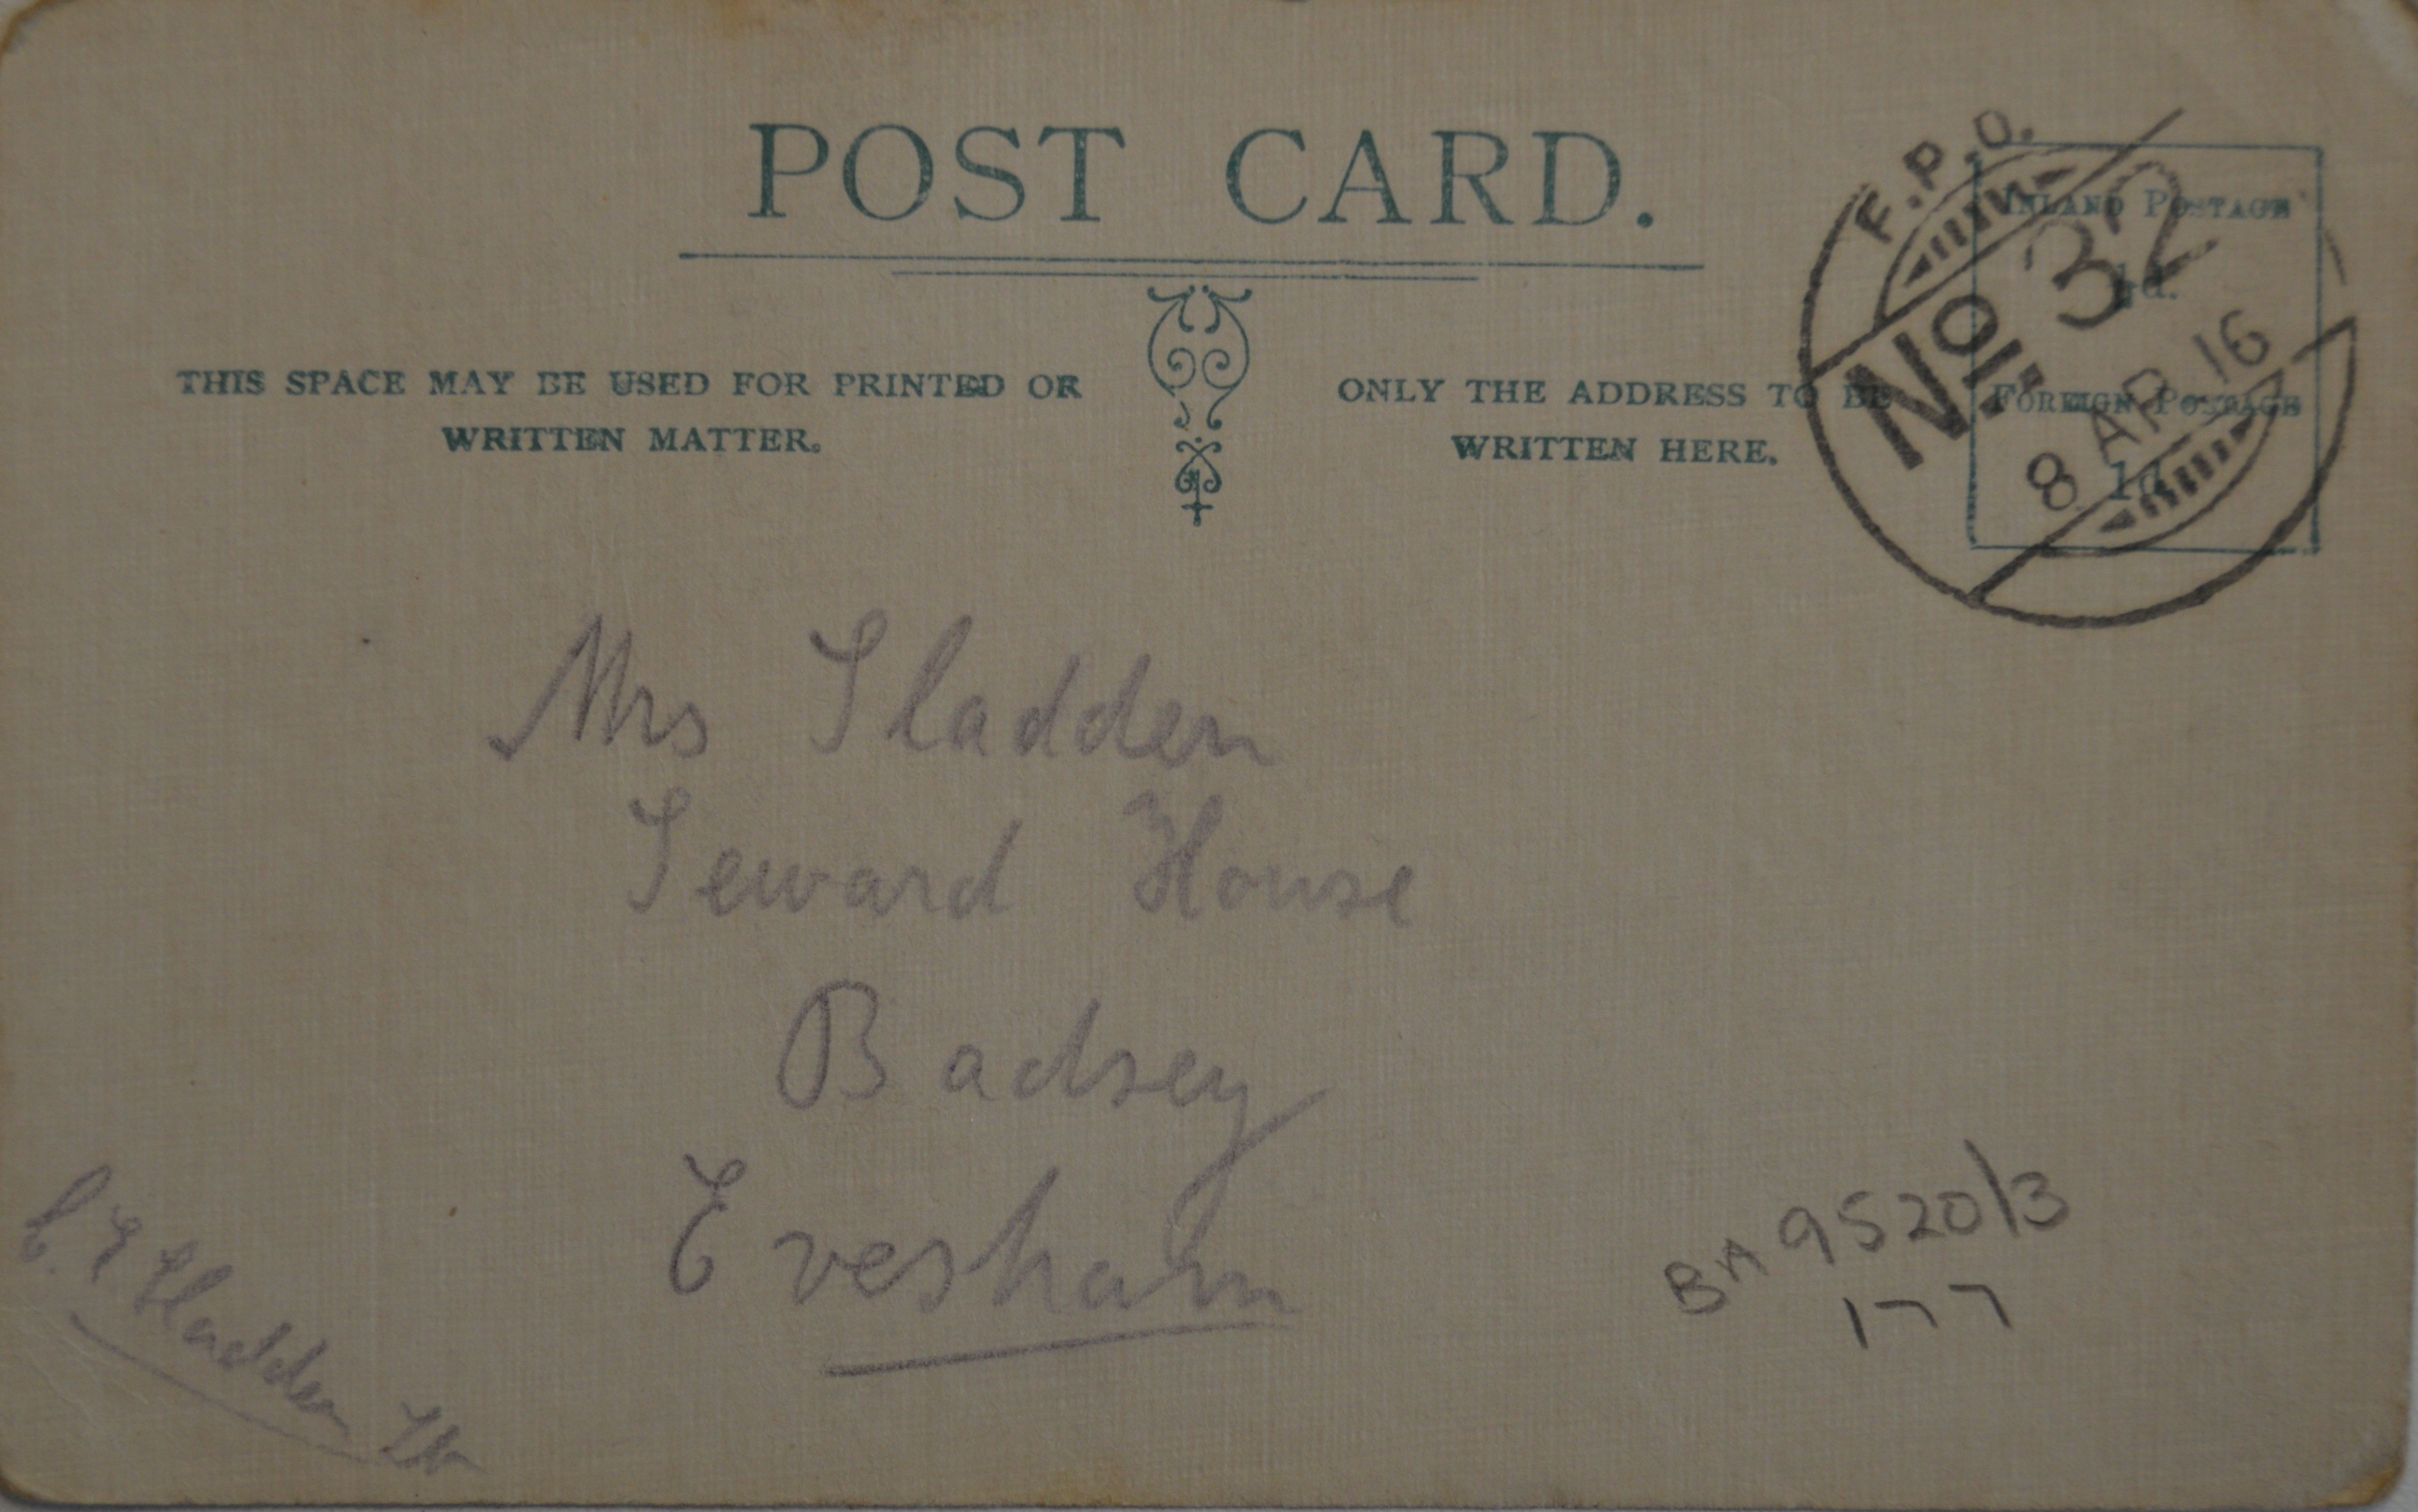 POST CARD.
THIS SPACE MAY BE USED FOR PRINTED OR
WRITTEN MATTER.
ONLY THE ADDRESS TO BE
WRITTEN HERE.
INLAND POSTAGE
½d.
FOREIGN POSTAGE
1d.
F.P.O.
No. 32
8 AP 16
Mrs Sladden
Seward House
Badsey
Evesham
C. E. Sladden Lt
BA 9520/3
177